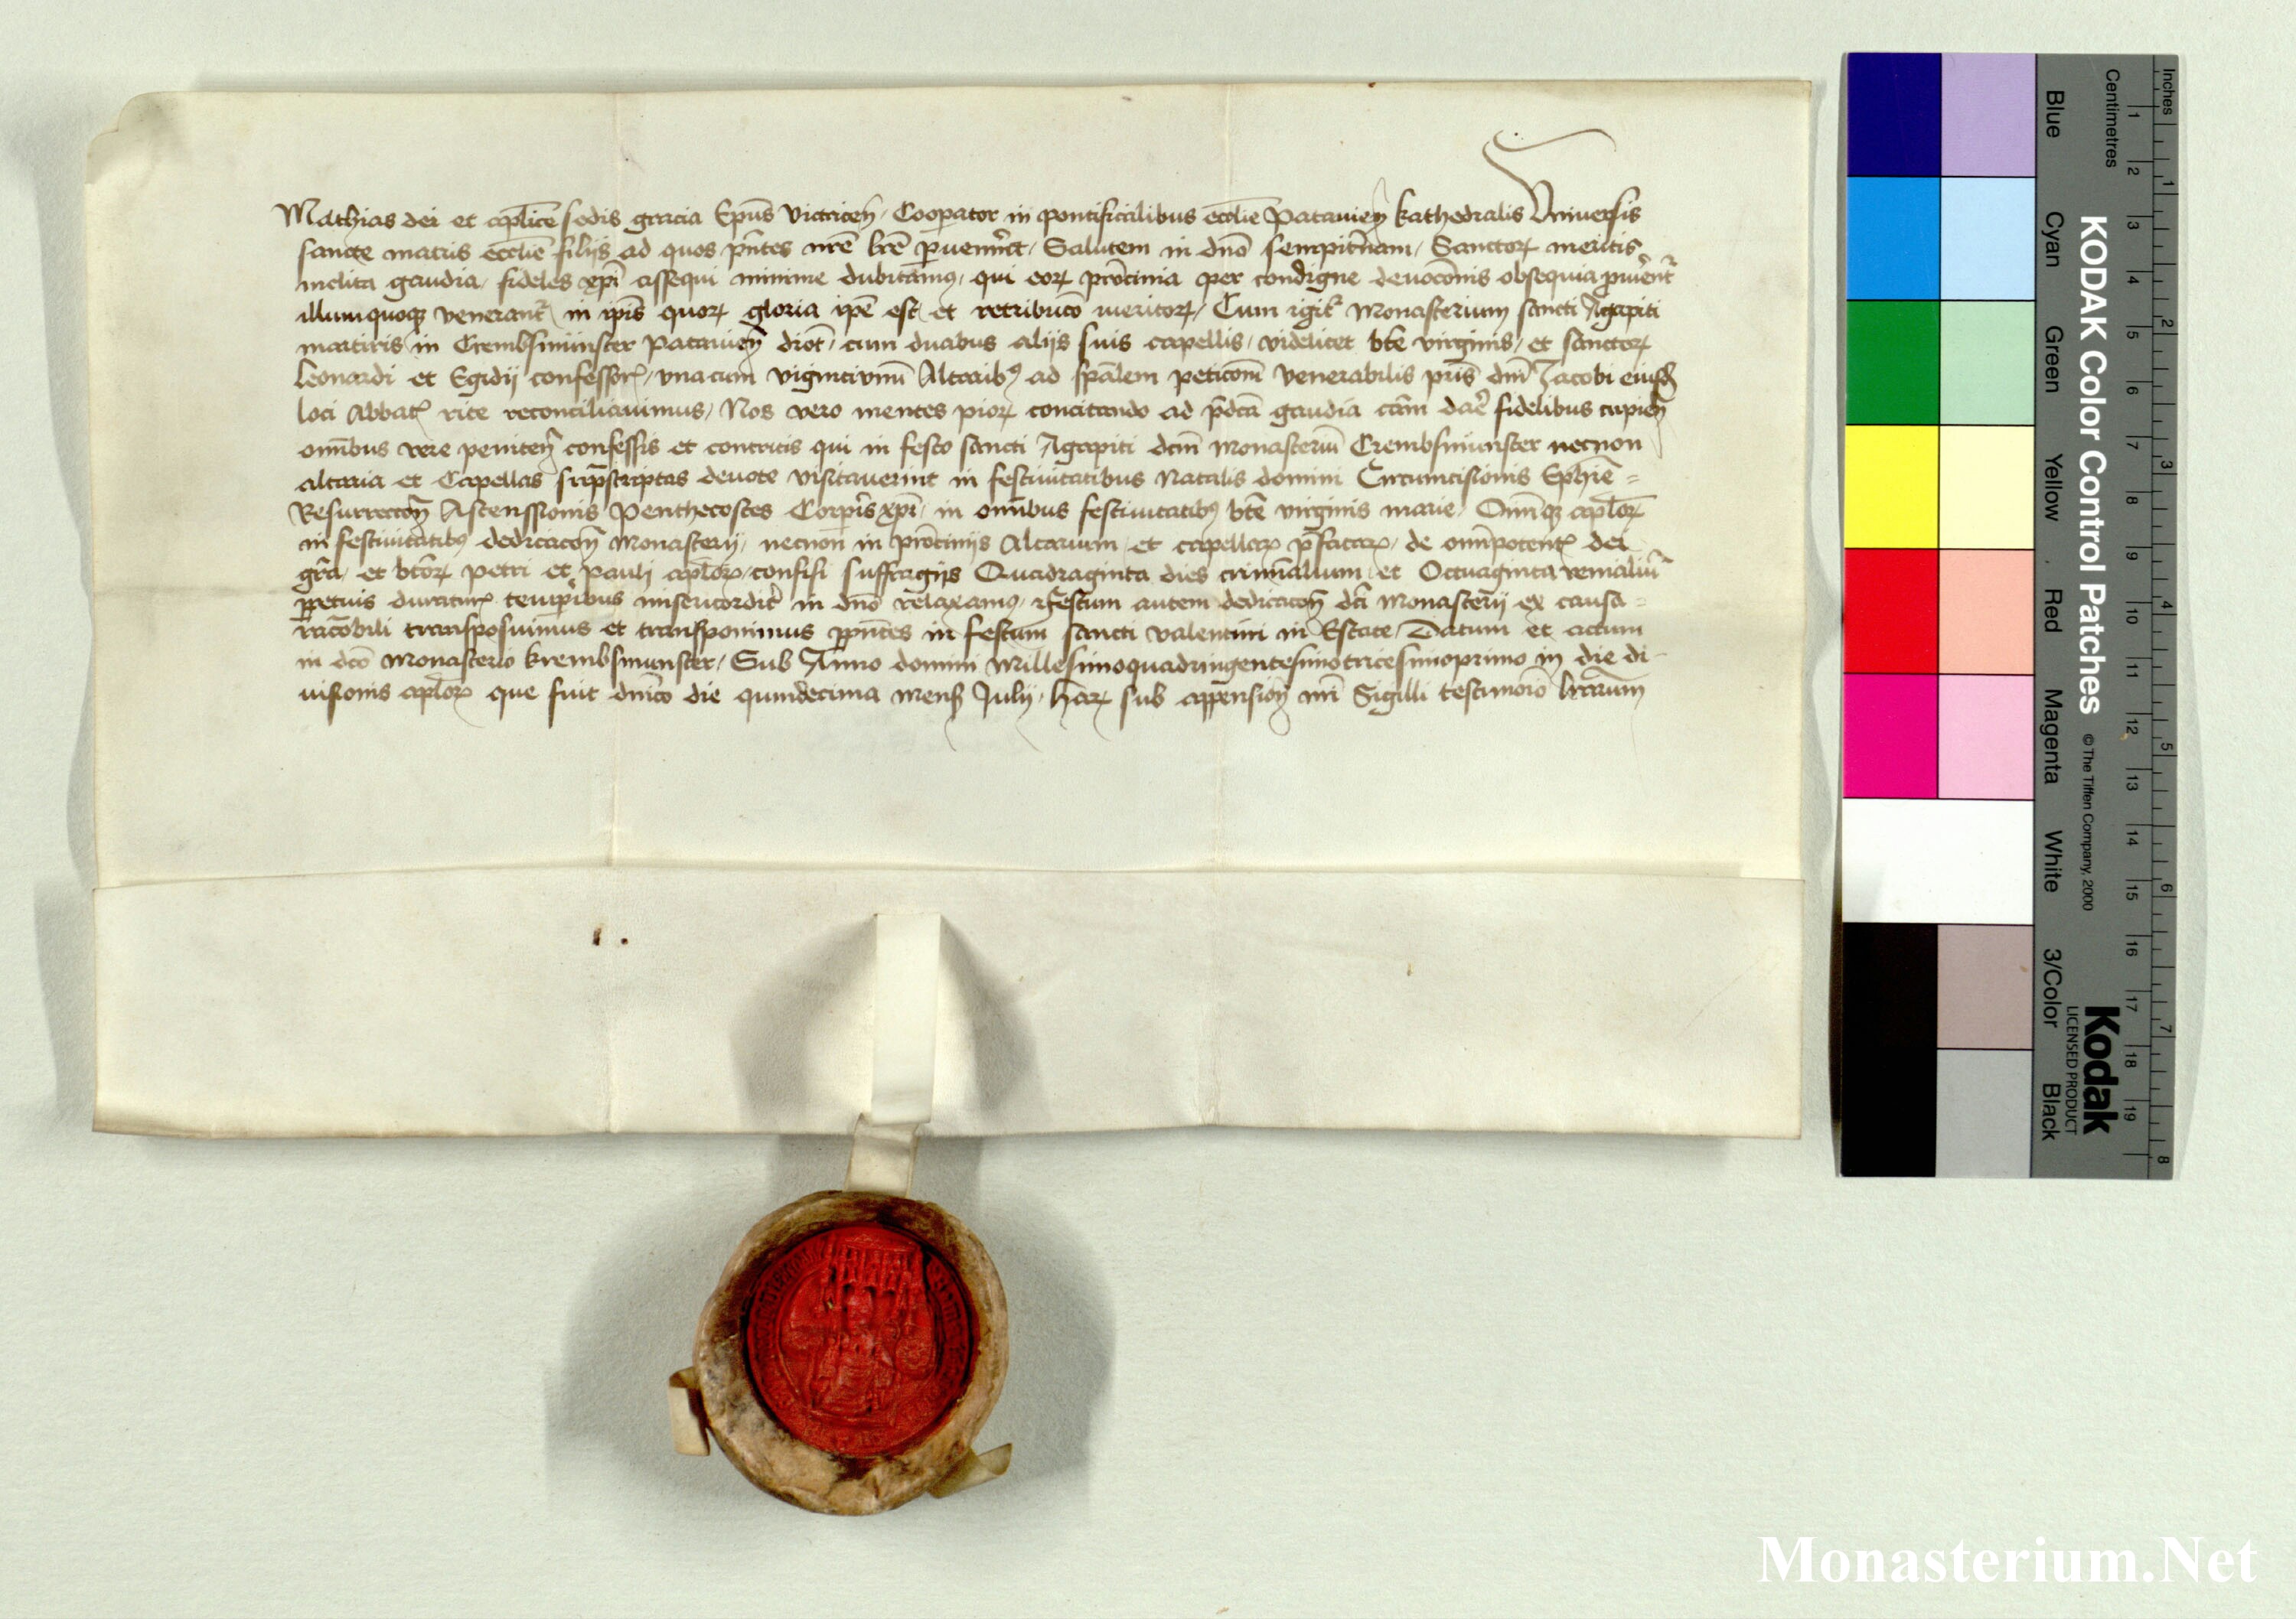 Mathias dei et aplice sedis gracia Epus victricen Cooperator in pontificalibus ecclie Patavien kathedralis Universis
sancte matris ecclie filijs ad quos pntes nre lre pvenint Salutem in dno sempitnam Sanctor meritis
inclita gaudia fideles xpi assequi minime dubitamus qui eor procinia per condigne devoconis obsequia
illumquoq venerant in ipis quor gloria ipe est et retribuco meritor Cum igit Monasterium sancti Agapiti
martiris in Crembsmünster Patavien dioc cum duabus alijs suis capellis videlicet bte virginis et sanctor
Leonardi et Egidij confessor vnacum vigintivnū Altarib ad spalem peticom venerabilis pris dni Jacobi eiusd
loci Abbat rite reconciliauimus Nos vero mentes pior concitando ad pdca gaudia cam dare fidelibus cupien
omibus vere peniten confessis et contritis qui in festo sancti Agapiti dcm Monasteriū Crembsmünster necnon
altaria et Capellas supscriptas devote visitaverint in festiuitatibus Natalis domini Circumcisionis Ephie =
Resurreccon Ascenssionis Penthecostes Corpis xpi in omibus festiuitatib bte virginis marie Omniq aplor
in festiuitatib dedicacon Monasterij necnon in procinijs Altarium et capellar pfatar de omipotent dei
gra et btor petri et pauli aplor confisi suffragijs Quadraginta dies criminalium et Octuaginta venialiū
ppetuis duratur tempibus misericordit in dno relaxamus Festum autem dedicacon dci Monasterij ex causa =
racobili transposuimus et transponimus ppntes in festum sancti valentini in Estate Datum et actum
in dco Monasterio krembsmunster Sub Anno domini Millesimoquadringentesimotricesimoprimo in die di-
uisionis aplor que fuit dnico die quindecima mens Julij har sub appension nri Sigilli testimonio lrarum
Inches
Centimetres
1 2 3 4 5 6 7 8 9 10 11 12 13 14 15 16 17 18 19
1 2 3 4 5 6 7 8
KODAK Color Control Patches © The Tiffen Company, 2000
Kodak
LICENSED PRODUCT
Blue Cyan Green Yellow Red Magenta White 3/Color Black
Monasterium.Net